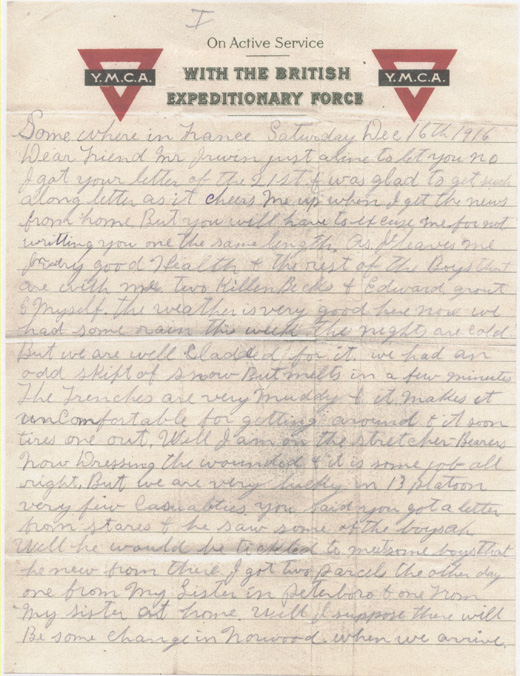 I
On Active Service
Y.M.C.A. WITH THE BRITISH Y.M.C.A.
EXPEDITIONARY FORCE
Some where in France Saturday Dec 16th 1916
Dear Friend Mr Irwin just a line to let you no
I got your letter of the 21st & was glad to get such
a long letter as it cheers me up when I get the news
from home But you will have to excuse me for not
writting you one the same length. As it leaves me
very good Health & the rest of the Boys that
are with me two Killen Becks & Edward grout
& Myself. The weather is very good here now we
had some rain this week the nights are cold
But we are well Cladded for it. we had an
odd skift of snow But melts in a few minutes
The Trenches are very Muddy & it makes it
unComfortable for getting around & it soon
tires one out. Well I am on the stretcher Bearers
now Dressing the wounded & it is some job all
right. But we are very lucky in 13 platoon
very few Casualties. you said you got a letter
from stares & he saw some of the boys ah
Well he would be tickled to meet some boys that
he new from there I got two parcels the other day
one from My Sister in peterboro & one from
My sister at home. Well I suppose there will
Be some change in Norwood when we arrive.